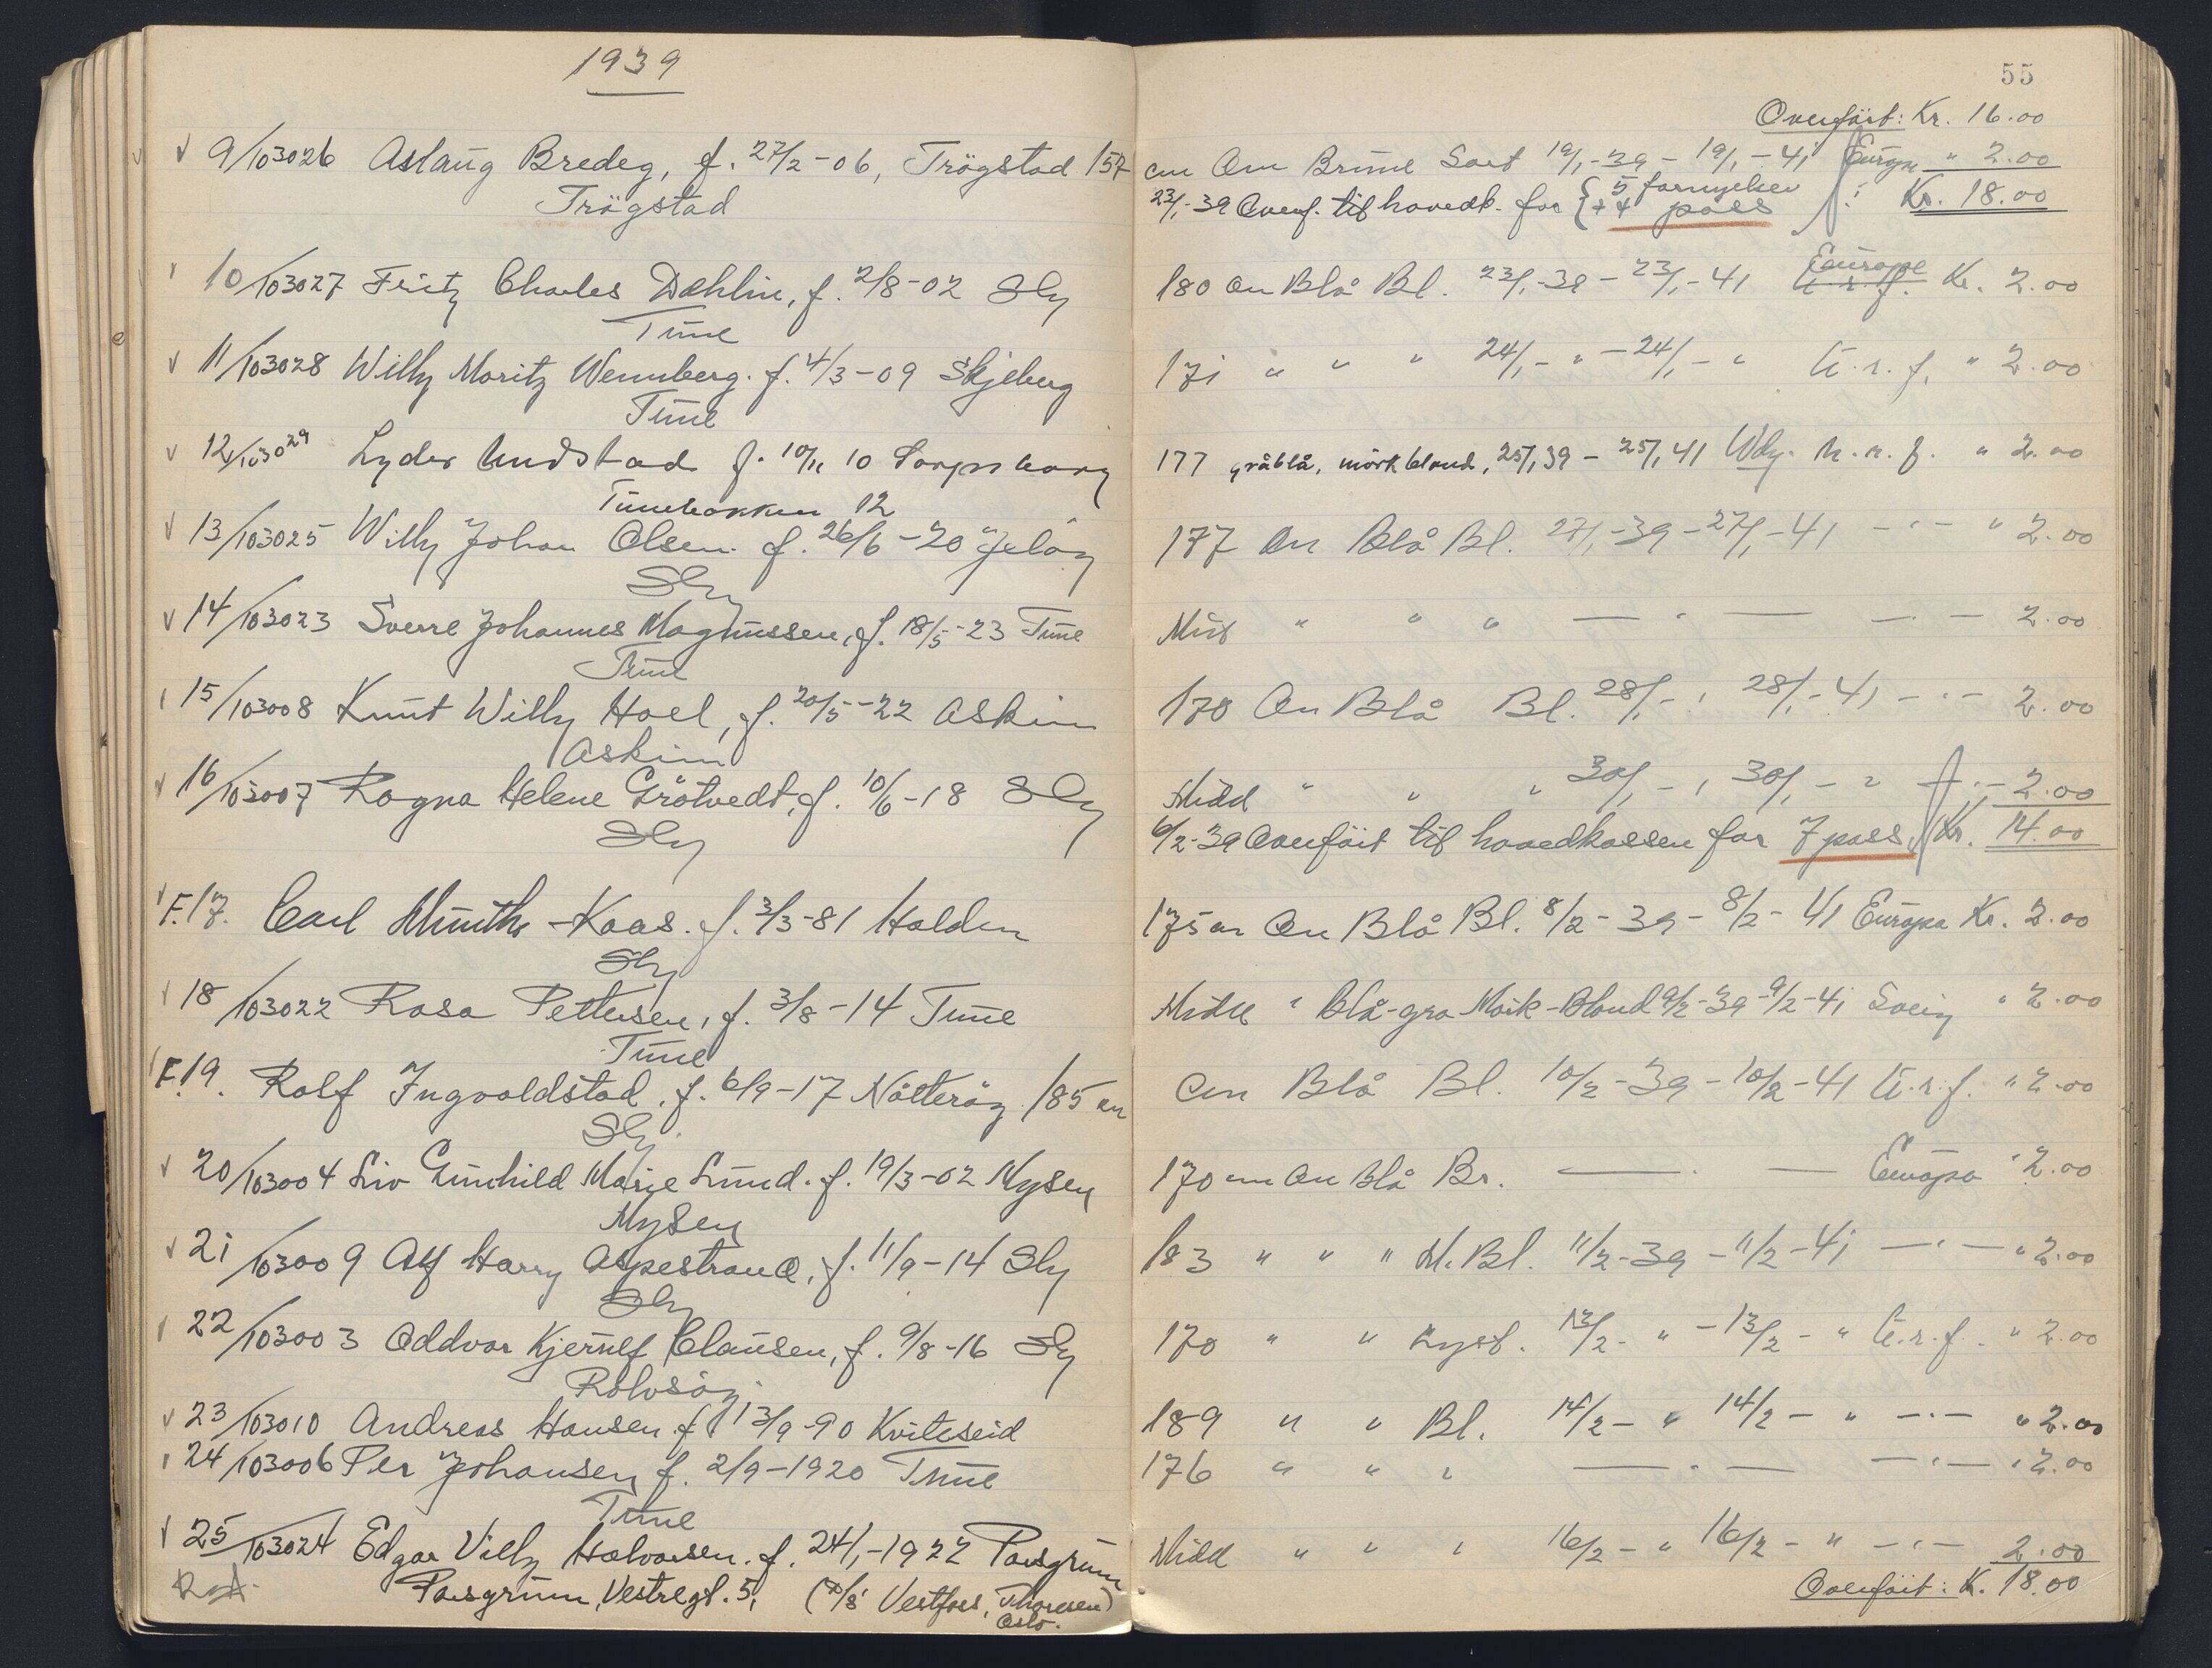 1939
55
Overført: Kr. 16.00
9/103026 Aslaug Bredeg, f. 27/2-06, Trögstad 157 cm Ov Brune Sort 19/1-39 - 19/1-41 Europa " 2.00
Trögstad
23/1-39 Overf. til hovedk. for { 5 fornyelser + 4 pass : Kr. 18.00
10/103027 Fritz Charles Dæhlin, f. 2/8-02 Sbg 180 Ov Blå Bl. 23/1-39 - 23/1-41 Europa U.r.f. Kr. 2.00
Tune
11/103028 Willy Moritz Wennberg. f. 4/3-09 Skjeberg 171 " " " 24/1- " - 24/1- " U.r.f. " 2.00
Tune
12/103029 Lyder Undstad f. 10/11 10 Sarpsborg 177 gråblå, mörkblond, 25/1 39 - 25/1 41 U.r.f. " 2.00
Tunebakken 12
13/103025 Willy Johan Olsen. f. 26/6-20 Jelöy 177 Ov Blå Bl. 27/1-39 - 27/1-41 - " - " 2.00
Sbg
14/103023 Sverre Johannes Magnussen, f. 18/5-23 Tune " " " — " — — " — 2.00
Tune
15/103008 Knut Willy Hoel, f. 20/5-22 Askim 170 Ov Blå Bl. 28/1- " 28/1-41 - " - 2.00
Askim
16/103007 Ragna Helene Grötvedt, f. 10/6-18 Sbg Midd " " " 30/1- " 30/1- " - " - 2.00
Sbg
6/2-39 Overfört til hovedkassen for 7 pass. Kr. 14.00
F.17. Carl Munthe-Kaas. f. 3/3-81 Halden 175 cm Ov Blå Bl. 8/2-39 - 8/2-41 Europa Kr. 2.00
Sbg
18/103022 Rosa Pettersen, f. 3/8-14 Tune Midd " Blå-grå Mörk-Blond 9/2-39 - 9/2-41 " 2.00
Tune
F.19. Rolf Ingvoldstad. f. 6/9-17 Nötteröy 185 cm Ov Blå Bl. 10/2-39 - 10/2-41 U.r.f. " 2.00
Sbg
20/103004 Liv Gunhild Marie Lund. f. 19/3-02 Mysen 170 cm Ov Blå Br. — " — Europa " 2.00
Mysen
21/103009 Alf Harry Aspestrand, f. 11/9-14 Sbg 183 " " " M.Bl. 11/2-39 - 11/2-41 — " — " 2.00
Sbg
22/103003 Oddvar Kjernlf Clausen, f. 9/8-16 Sbg 170 " " Lysbl. 13/2- " - 13/2- " U.r.f. " 2.00
Rolvsöy
23/103010 Andreas Hansen f. 13/9-90 Kviteseid 189 " " Bl. 14/2- " 14/2- " - " - " 2.00
24/103006 Per Johansen, f. 2/9-1920 Tune 176 " " " — " — — " — " 2.00
Tune
25/103024 Edgar Villy Halvorsen. f. 24/1-1922 Porsgrunn Midd " " " 16/2- " 16/2- " - " - 2.00
Porsgrunn, Vestregt. 5, (D/S Vestfoss, Thoresen) Oslo.
Overfört: Kr. 18.00